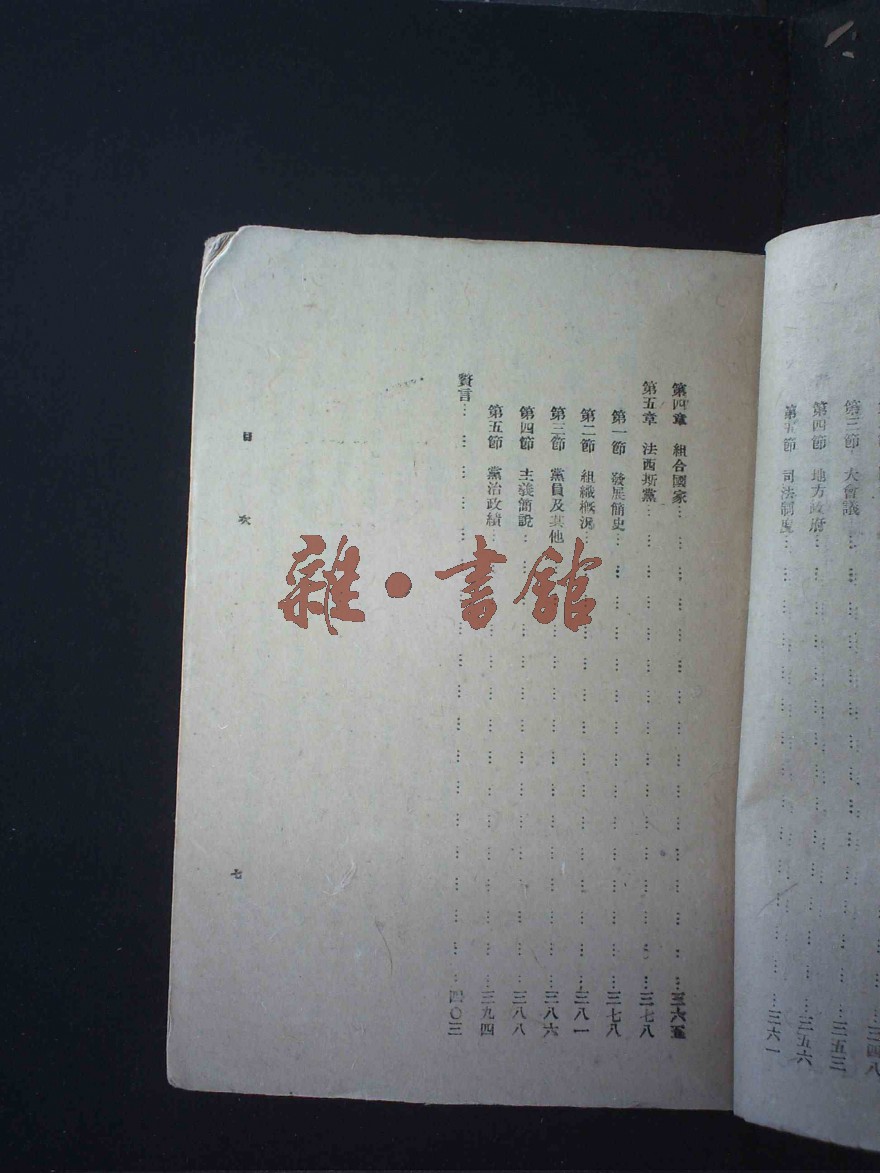 三四八
第三節 大會議……三五三
第四節 地方政府……三五六
第五節 司法制度……三六一
第四章 組合國家……三六五
第五章 法西斯黨……三七八
第一節 發展簡史……三七八
第二節 組織概況……三八一
第三節 黨員及其他……三八六
第四節 主義簡說……三八八
第五節 黨治政績……三九四
贅言……四〇三
目次
七
雜·書館